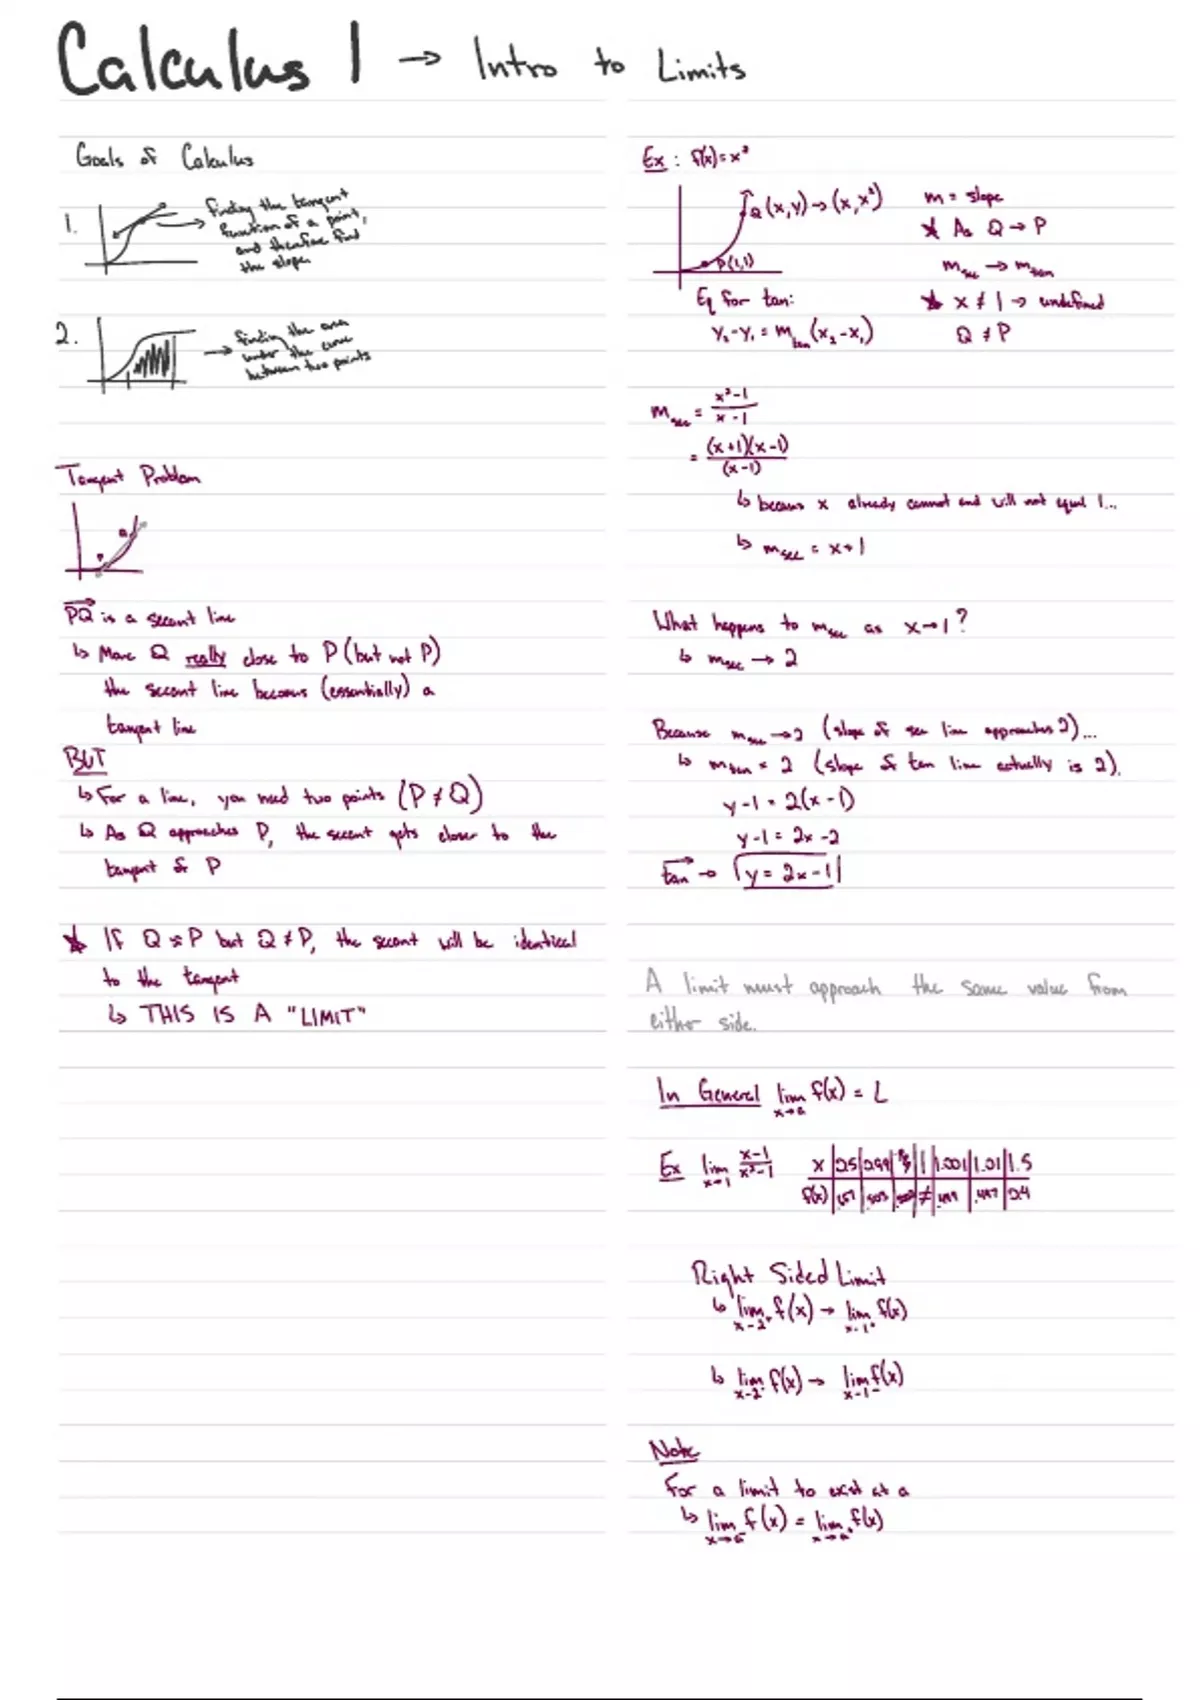 Calculus 1 → Intro to Limits
Goals of Calculus
1.
→ finding the tangent
function of a point,
and therefore find
the slope
2.
→ finding the area
under the curve
between two points
Tangent Problem
P Q
PQ is a secant line
↳ Move Q really close to P (but not P)
the secant line becomes (essentially) a
tangent line
BUT
↳ For a line, you need two points (P ≠ Q)
↳ As Q approaches P, the secant gets closer to the
tangent of P
★ If Q ≈ P but Q ≠ P, the secant will be identical
to the tangent
↳ THIS IS A "LIMIT"
Ex: f(x) = x²
Q (x,y) → (x, x²)
P(1,1)
m = slope
★ As Q → P
m sec → m tan
★ x ≠ 1 → undefined
Q ≠ P
Eq for tan:
y₂-y₁ = m tan (x₂-x₁)
m sec = x²-1 / x-1
= (x+1)(x-1) / (x-1)
↳ because x already cannot and will not equal 1...
↳ m sec = x+1
What happens to m sec as x→1?
↳ m sec → 2
Because m sec → 2 (slope of sec line approaches 2)...
↳ m tan = 2 (slope of tan line actually is 2).
y-1 = 2(x-1)
y-1 = 2x-2
tan → y = 2x-1
A limit must approach the same value from
either side.
In General lim x→a f(x) = L
Ex lim x→1 x-1 / x²-1
x | | | | 1 | 1.001 | 1.01 | 1.5
f(x) | | .503 | | ≠ | .499 | .497 | 0.4
Right Sided Limit
↳ lim x-2⁺ f(x) → lim x-1⁺ f(x)
↳ lim x-2⁻ f(x) → lim x-1⁻ f(x)
Note
For a limit to exist at a
↳ lim x→a⁻ f(x) = lim x→a⁺ f(x)